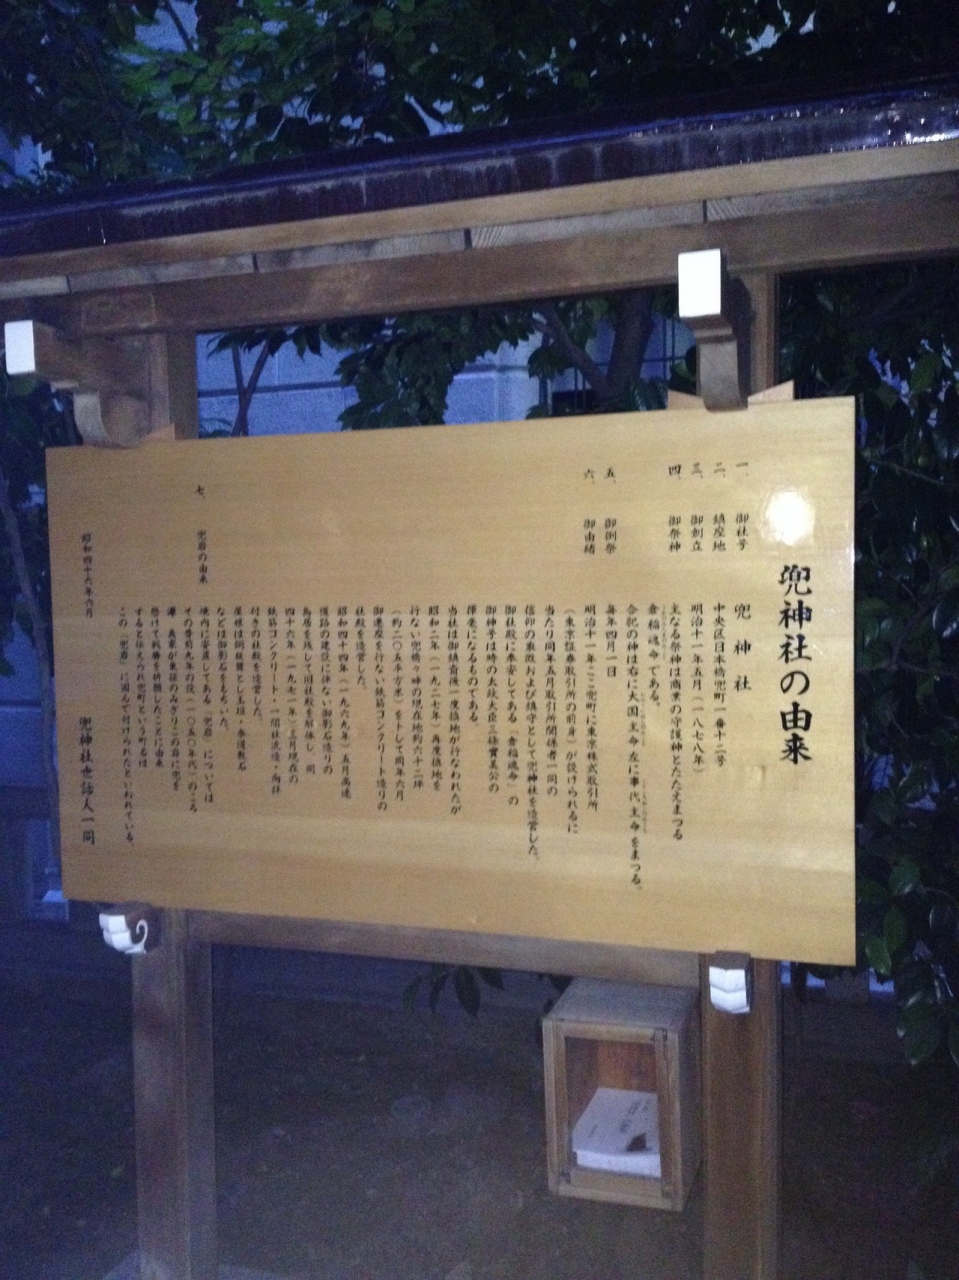 兜神社の由来
一、 御社号 兜神社
二、 鎮座地 中央区日本橋兜町一番十二号
三、 御創立 明治十一年五月(一八七八年)
四、 御祭神 主なる祭神は商業の守護神とたたえまつる
倉稲魂命である。
合祀の神は右に大国主命左に事代主命をまつる。
五、 御例祭 毎年四月一日
六、 御由緒 明治十一年ここ兜町に東京株式取引所
(東京証券取引所の前身)が設けられるに
当たり同年五月取引所関係者一同の
信仰の象徴および鎮守として兜神社を造営した。
御社殿に奉安してある「倉稲魂命」の
御神号は時の太政大臣三條實美公の
揮毫になるものである。
当社は御鎮斎後一度換地が行なわれたが
昭和二年(一九二七年)再度換地を
行ない兜橋々畔の現在地約六十二坪
(約二〇五平方米)をトして同年六月
御遷座を行ない鉄筋コンクリート造りの
社殿を造営した。
昭和四十四年(一九六九年)五月高速
道路の建設に伴ない御影石造りの
鳥居を残して旧社殿を解体し、同
四十六年(一九七一年)三月現在の
鉄筋コンクリート・一間社流造・向拝
付きの社殿を造営した。
屋根は銅板葺とし玉垣・参道敷石
などは御影石をもちいた。
七、 兜岩の由来 境内に安置してある「兜岩」については
その昔前九年の役(一〇五〇年代)のころ
源 義家が東征のみぎりこの岩に兜を
懸けて戦勝を祈願したことに由来
すると伝えられ兜町という町名は
この「兜岩」に因んで付けられたといわれている。
昭和四十六年六月 兜神社世話人一同